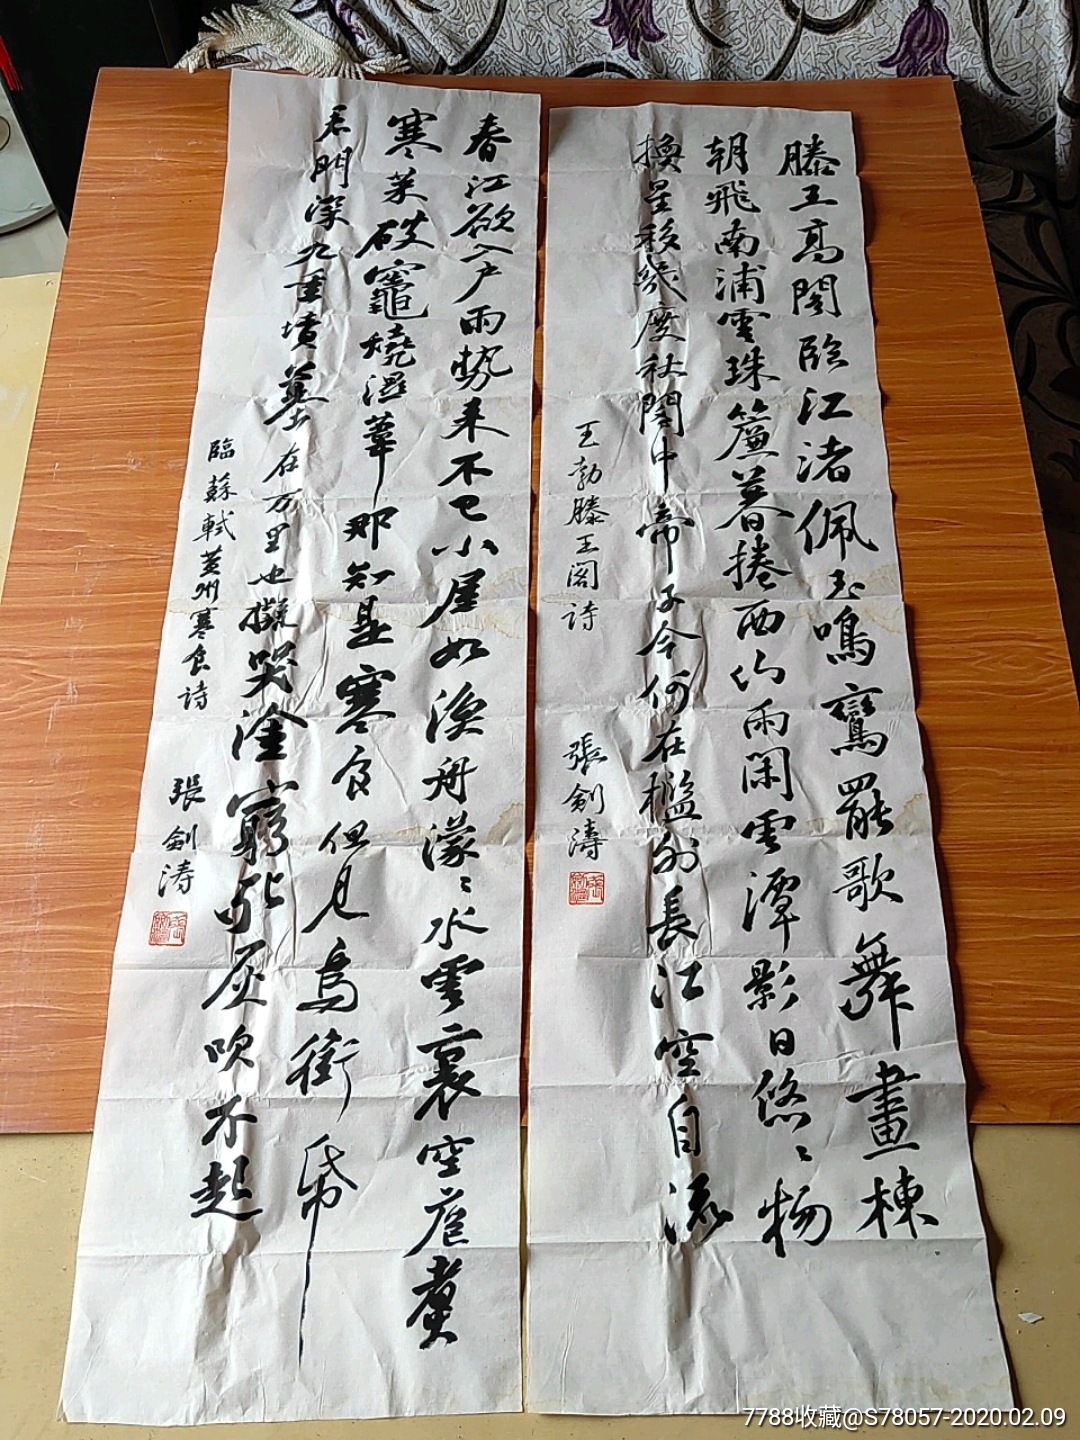 滕王高閣臨江渚佩玉鳴鸞罷歌舞畫棟
朝飛南浦雲珠簾暮捲西山雨閑雲潭影日悠〻物
換星移幾度秋閣中帝子今何在檻外長江空自流
王勃滕王阁诗 張劍濤
春江欲入户雨勢来不已小屋如漁舟濛〻水雲裏空庖煮
寒菜破竈燒濕葦那知是寒食但見烏銜帋
君門深九重墳墓在万里也擬哭塗窮死灰吹不起
臨蘇軾黄州寒食诗 張劍涛
7788收藏@S78057-2020.02.09